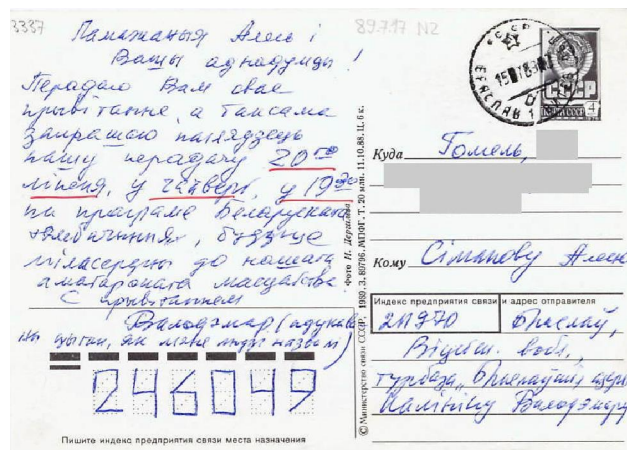 3337
89.7.17 N2
Паважаныя Алесь і
Вашы аднадумцы!
Перадаю Вам свае
прывітанне, а таксама
запрашаю паглядзець
нашу перадачу 20го
ліпеня, у чацвер, у 19
па праграме Беларускага
тэлебачання, будзьце
міласэрдны да нашага
аматарскага мастацтва
С прывітаннем
Валодэмар
цыган, як мяне людзі назвалі)
246049
Пишите индекс предприятия связи места назначения
© Министерство связи СССР, 1989, З. 80796. МПФГ. Т. 20 млн. 11.10.88. Ц. 6 к.
СССР
БРАСЛАВ
СССР
4
Куда Гомель,
Кому Сіманову Алесю
Индекс предприятия связи и адрес отправителя
211970 Браслаў,
Віцебск. вобл.,
турбаза „Браслаўскія азёры"
Калініну Валодэмару